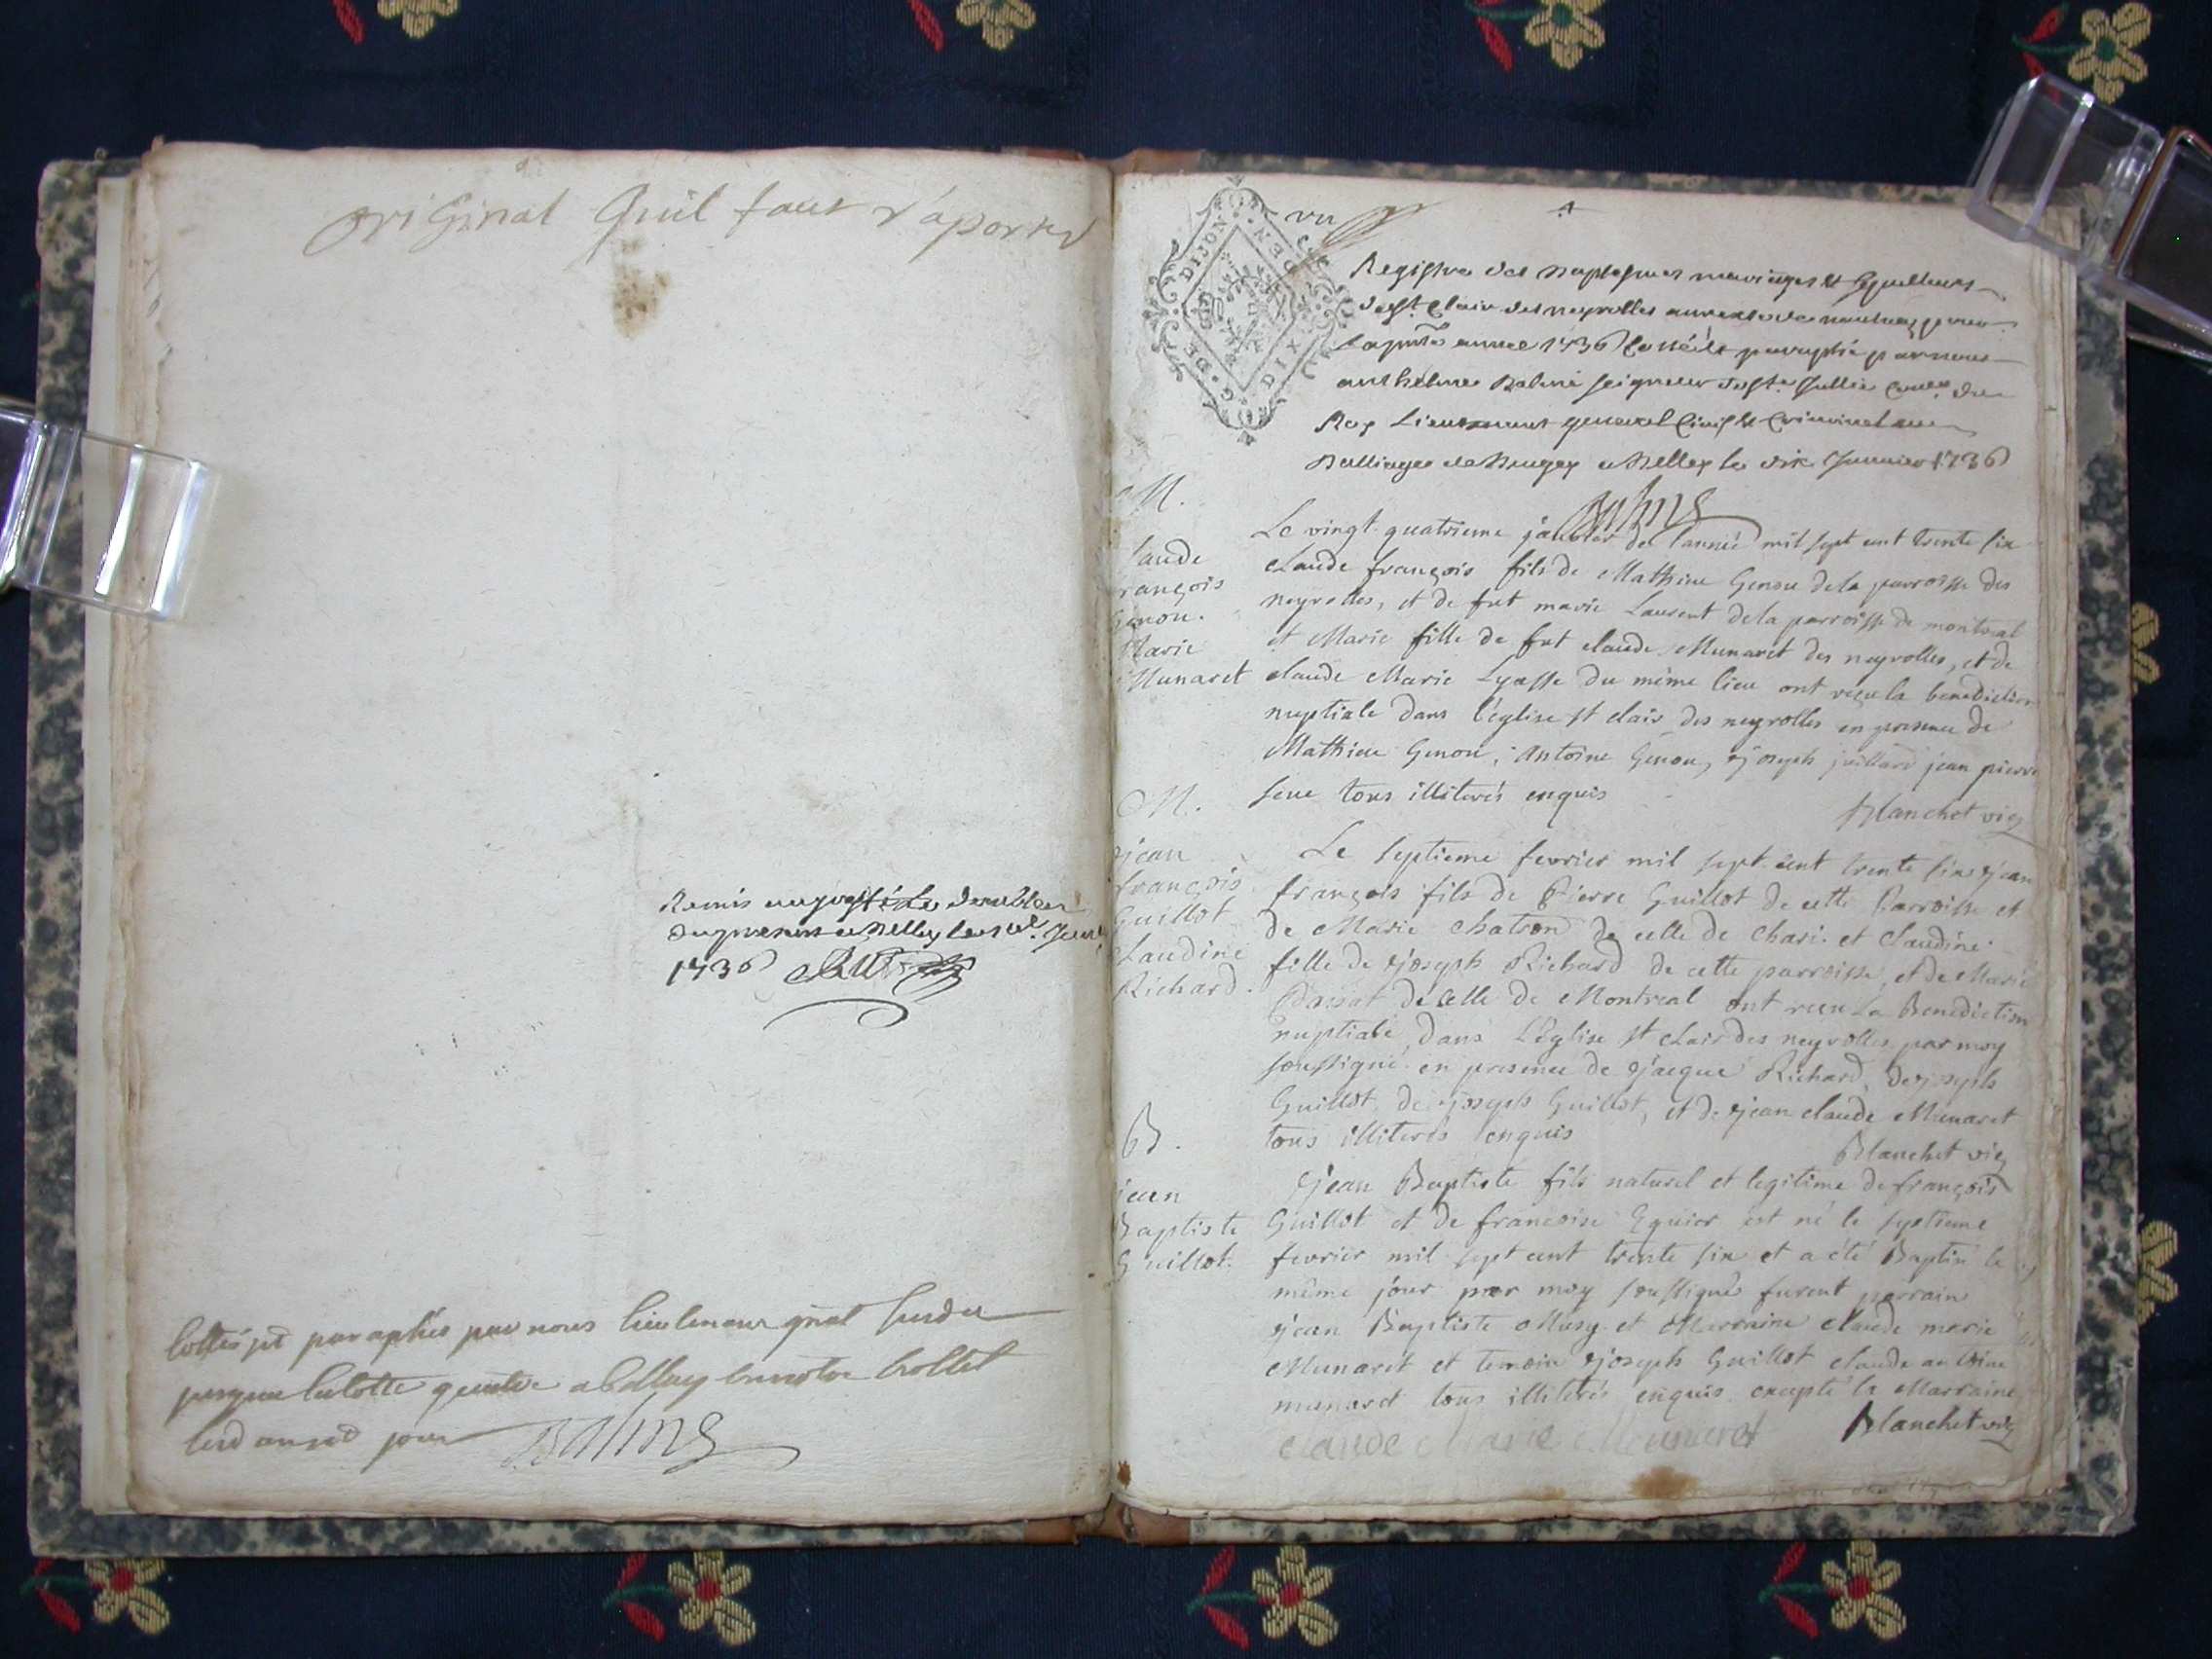 original Quil faut raporter
Remis
1736
Cottés et paraphés par nous lieutenant gnal susdit
jusques
led. an et jour Balme
vu
G. DE DIJON
GEN
DIX
Registre des Baptesmes mariages & sepultures
de St. Clair des neyrolles annexe de nantua pour
La pnte année 1736 Cotté & paraphé par nous
anthelme Balme seigneur de Ste. Jullie Coner. du
Roy Lieutenant general Civil & Criminel au
Balliage de Bugey a Belley le dix Janvier 1736
Balme
M.
Claude
François
Genou.
Marie
Munaret
Le vingt quatrieme janvier de l'année mil sept cent trente six
Claude françois fils de Mathieu Genou de la parroisse des
neyrolles, et de fut marie Laurent de la parroisse de montreal
et Marie fille de fut claude Munaret des neyrolles, et de
claude Marie Lyasse du même lieu ont reçu la benediction
nuptiale dans l'église st clair des neyrolles en presence de
Mathieu Genou, Antoine Genou, joseph juillard jean pierre
seve tous illiterés enquis
Blanchet vic
M.
jean
françois
Guillot
Claudine
Richard.
Le septieme fevrier mil sept cent trente six jean
françois fils de Pierre Guillot de cette Parroisse et
de Marie Chatron de celle de Chari. et Claudine
fille de joseph Richard de cette parroisse, et de Marie
de celle de Montreal ont recu La Benediction
nuptiale, dans L'Eglise st Clair des neyrolles par moy
soussigné en presence de jacque Richard, de joseph
Guillot, de joseph Guillot, et de jean claude Munaret
tous illiterés enquis
Blanchet vic
B.
jean
Baptiste
Guillot.
jean Baptiste fils naturel et legitime de françois
Guillot et de francoise Eguier est né le septieme
fevrier mil sept cent trente six et a été Baptisé le
même jour par moy soussigné furent parrain
jean Baptiste Musy et Marraine claude marie
Munaret et temoin joseph Guillot claude antoine
munaret tous illiterés enquis excepté la Marraine
claude Marie Munaret Blanchet vic